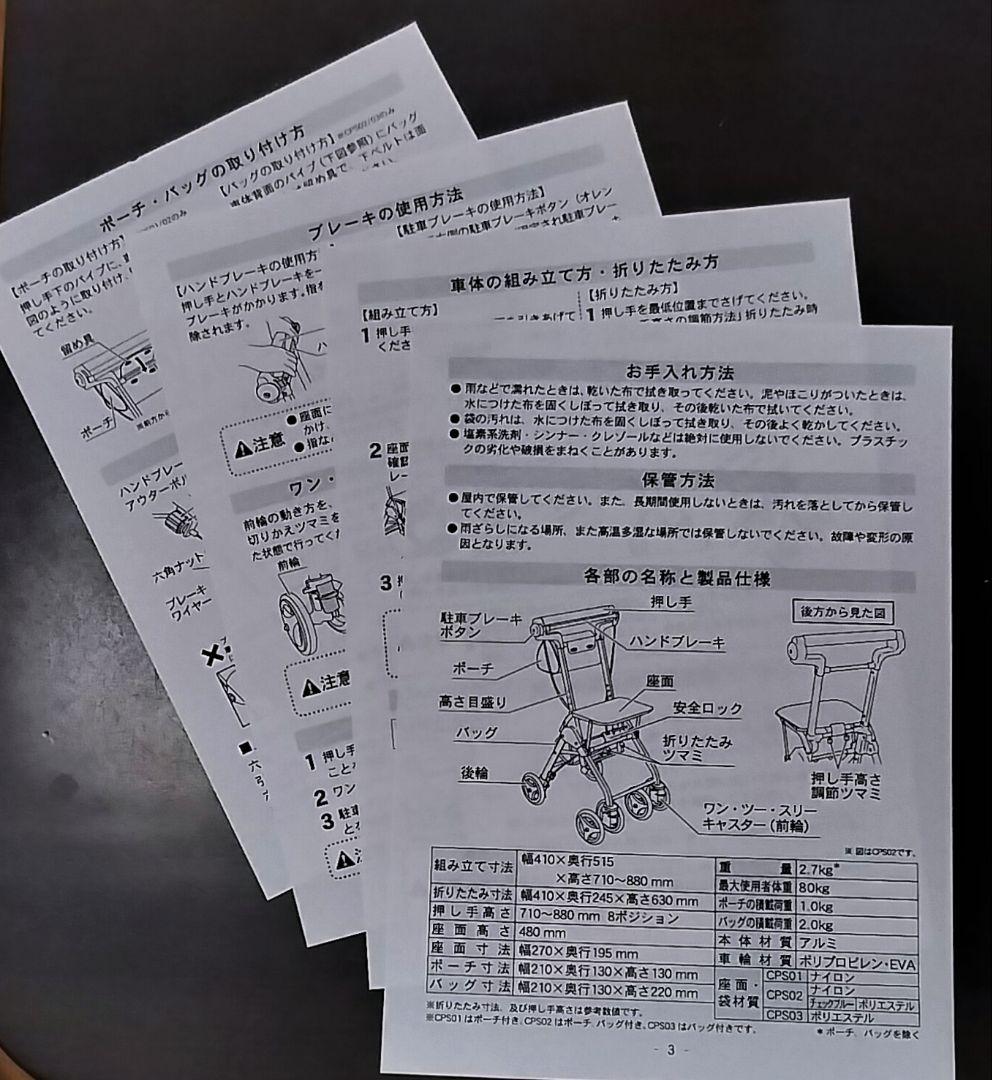 ポーチ・バッグの取り付け方
【ポーチの取り付け方】
押し手下のパイプに、
図のように取り付け、
てください。
【バッグの取り付け方】※CPS02/03のみ
車体背面のパイプ（下図参照）にバッグ
留め具で、下ベルトは面
留め具
ポーチ
ハンドブレー
アウターボル
六角ナット
ブレーキ
ワイヤー
ブレーキの使用方法
【ハンドブレーキの使用方
押し手とハンドブレーキを一
ブレーキがかかります。指を
除されます。
【駐車ブレーキの使用方法】
右側の駐車ブレーキボタン（オレン
固定され駐車ブレー
注意
●座面に
かけ、
●指な
ワン・
前輪の動き方を、
切りかえツマミを
た状態で行ってくだ
前輪
注意
1 押し手
ことを
2 ワン
3 駐車
車体の組み立て方・折りたたみ方
【組み立て方】
1 押し手
くださ
を引きあげて
【折りたたみ方】
1 押し手を最低位置までさげてください。
高さの調節方法」折りたたみ時
2 座面
確認
レー
3
お手入れ方法
●雨などで濡れたときは、乾いた布で拭き取ってください。泥やほこりがついたときは、
水につけた布を固くしぼって拭き取り、その後乾いた布で拭いてください。
●袋の汚れは、水につけた布を固くしぼって拭き取り、その後よく乾かしてください。
●塩素系洗剤・シンナー・クレゾールなどは絶対に使用しないでください。プラスチッ
クの劣化や破損をまねくことがあります。
保管方法
●屋内で保管してください。また、長期間使用しないときは、汚れを落としてから保管し
てください。
●雨ざらしになる場所、また高温多湿な場所では保管しないでください。故障や変形の原
因となります。
各部の名称と製品仕様
押し手
後方から見た図
駐車ブレーキ
ボタン
ハンドブレーキ
ポーチ
座面
高さ目盛り
安全ロック
バッグ
折りたたみ
ツマミ
後輪
押し手高さ
調節ツマミ
ワン・ツー・スリー
キャスター（前輪）
※図はCPS02です。
組み立て寸法 幅410×奥行515
×高さ710〜880mm
折りたたみ寸法 幅410×奥行245×高さ630mm
押し手高さ 710〜880mm 8ポジション
座面高さ 480mm
座面寸法 幅270×奥行195mm
ポーチ寸法 幅210×奥行130×高さ130mm
バッグ寸法 幅210×奥行130×高さ220mm
重量 2.7kg*
最大使用者体重 80kg
ポーチの積載荷重 1.0kg
バッグの積載荷重 2.0kg
本体材質 アルミ
車輪材質 ポリプロピレン・EVA
座面・袋材質 CPS01 ナイロン
CPS02 ナイロン
チェックブルー ポリエステル
CPS03 ポリエステル
※折りたたみ寸法、及び押し手高さは参考数値です。
※CPS01はポーチ付き、CPS02はポーチ、バッグ付き、CPS03はバッグ付きです。
*ポーチ、バッグを除く
- 3 -